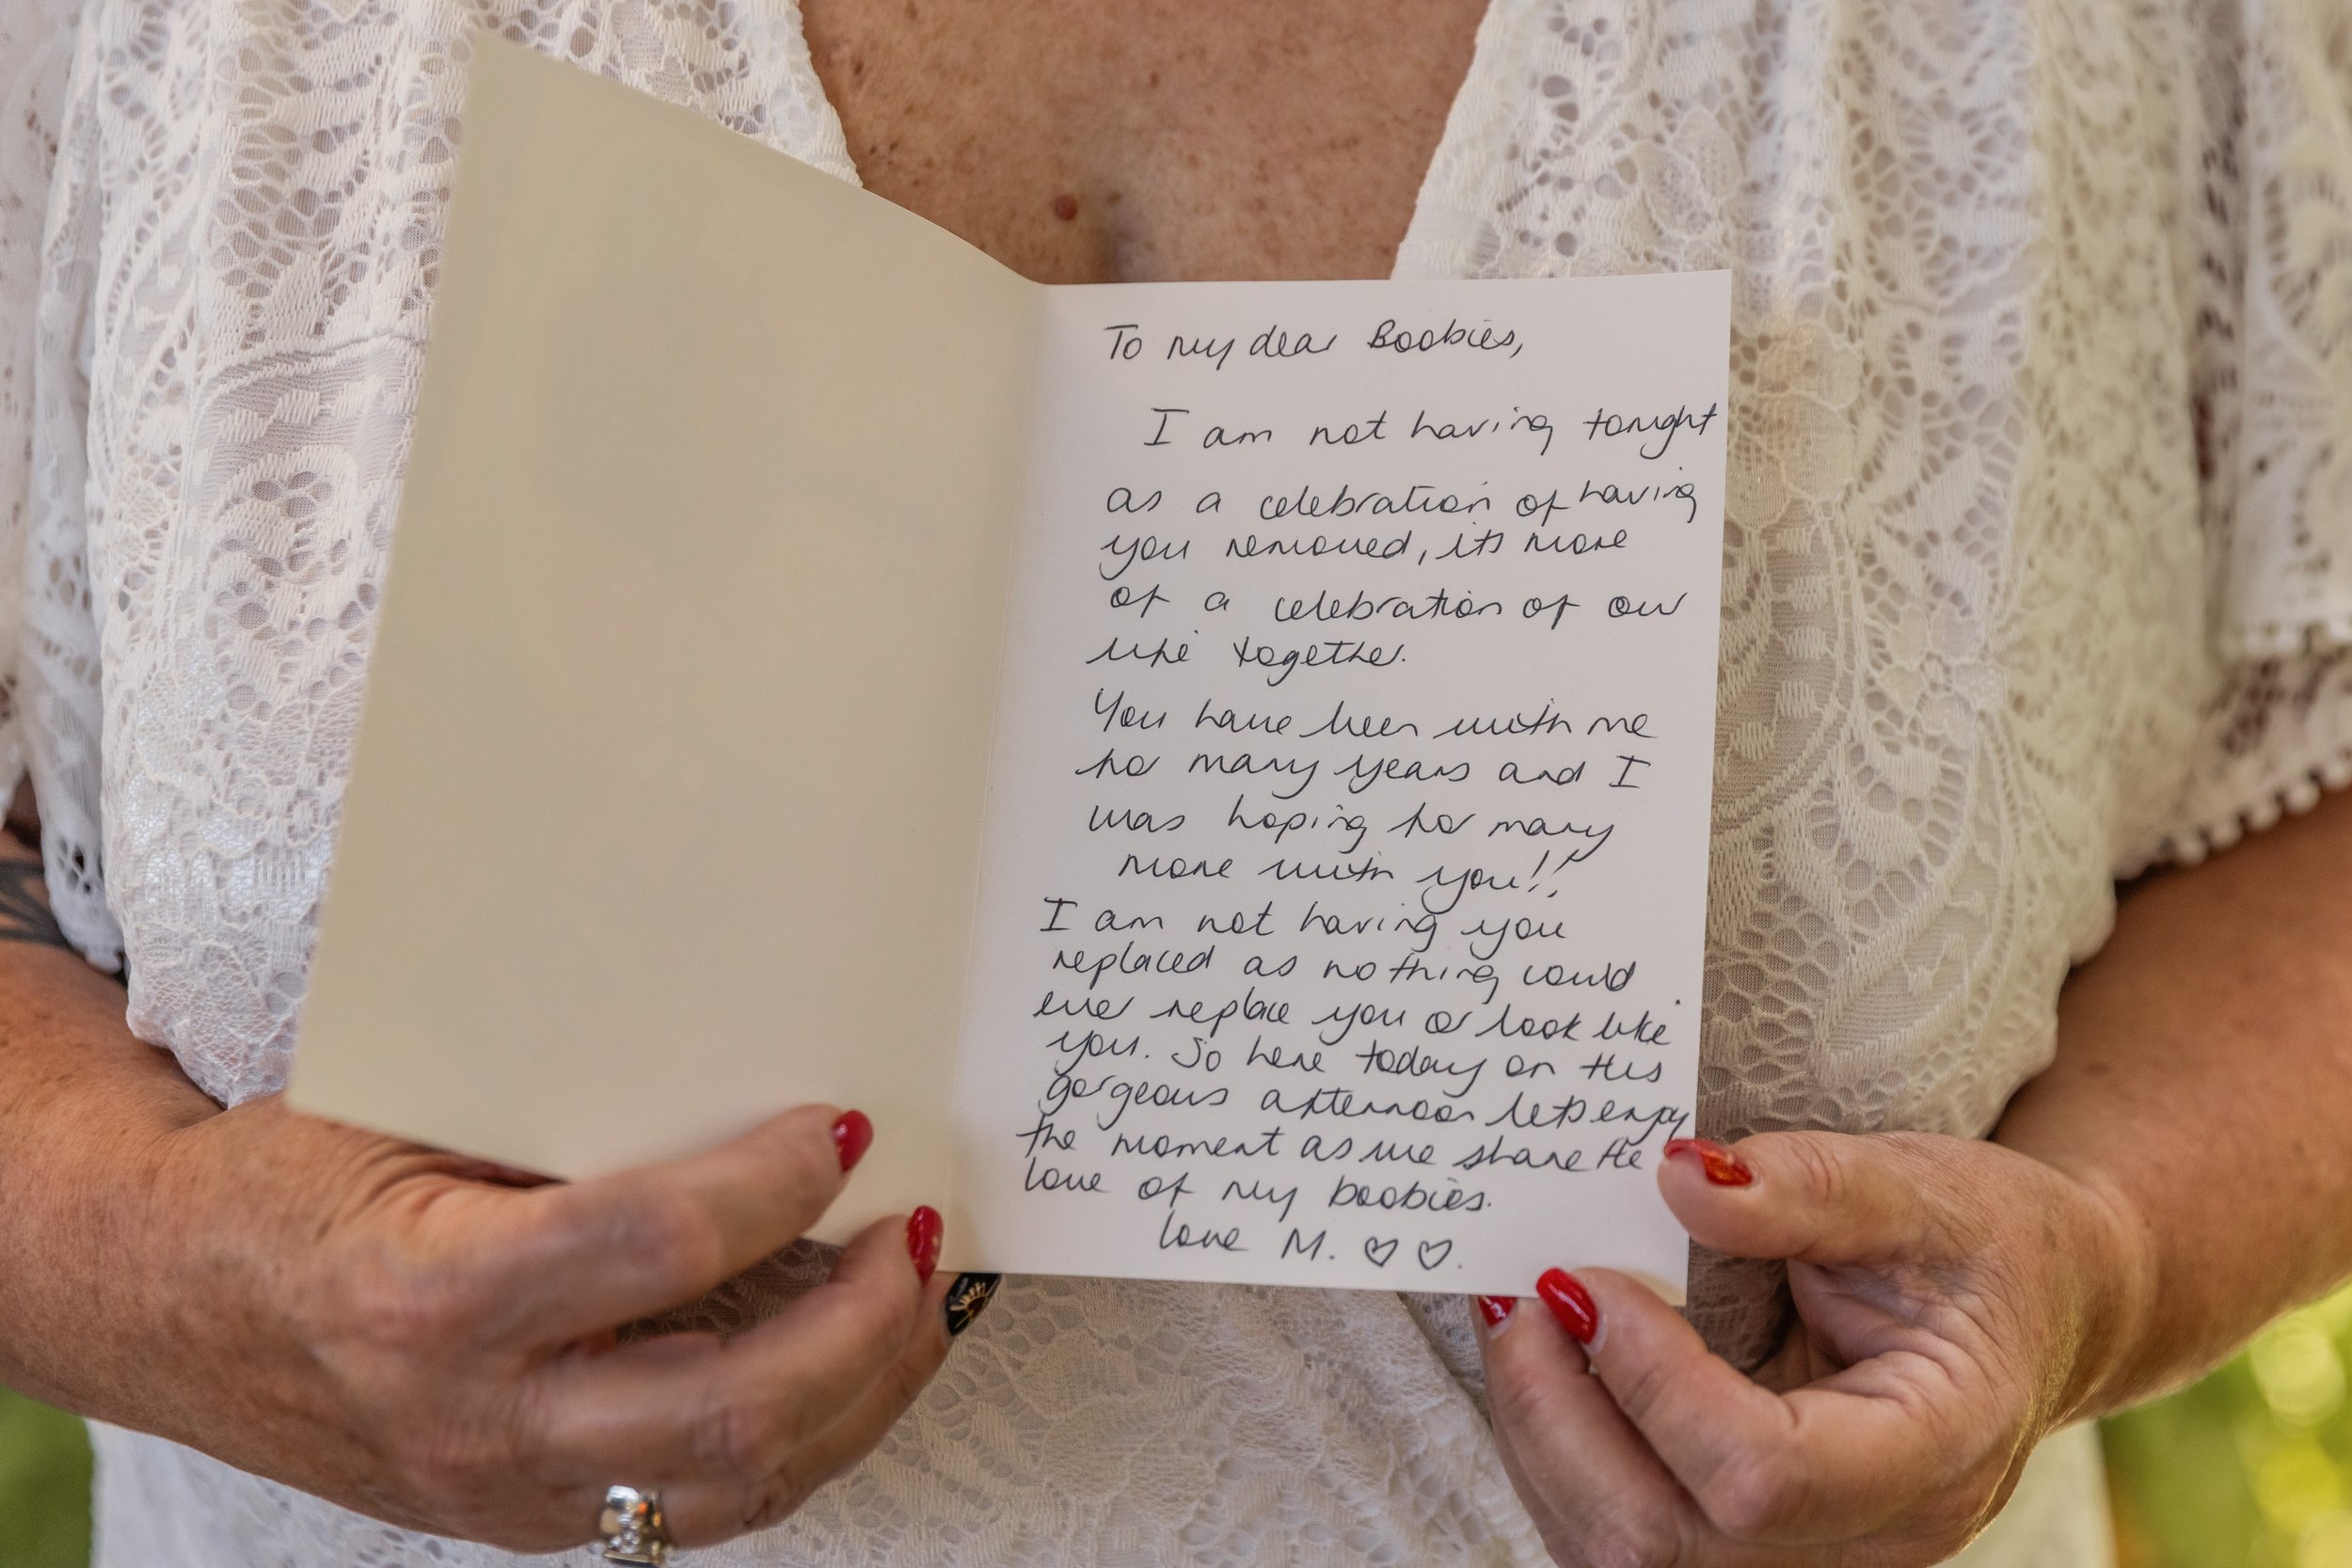 To my dear Boobies,
I am not having tonight
as a celebration of having
you removed, its more
of a celebration of our
life together.
You have been with me
for many years and I
was hoping for many
more with you!!
I am not having you
replaced as nothing could
ever replace you or look like
you. So here today on this
gorgeous afternoon lets enjoy
the moment as we share the
love of my boobies.
love M. ♡ ♡.